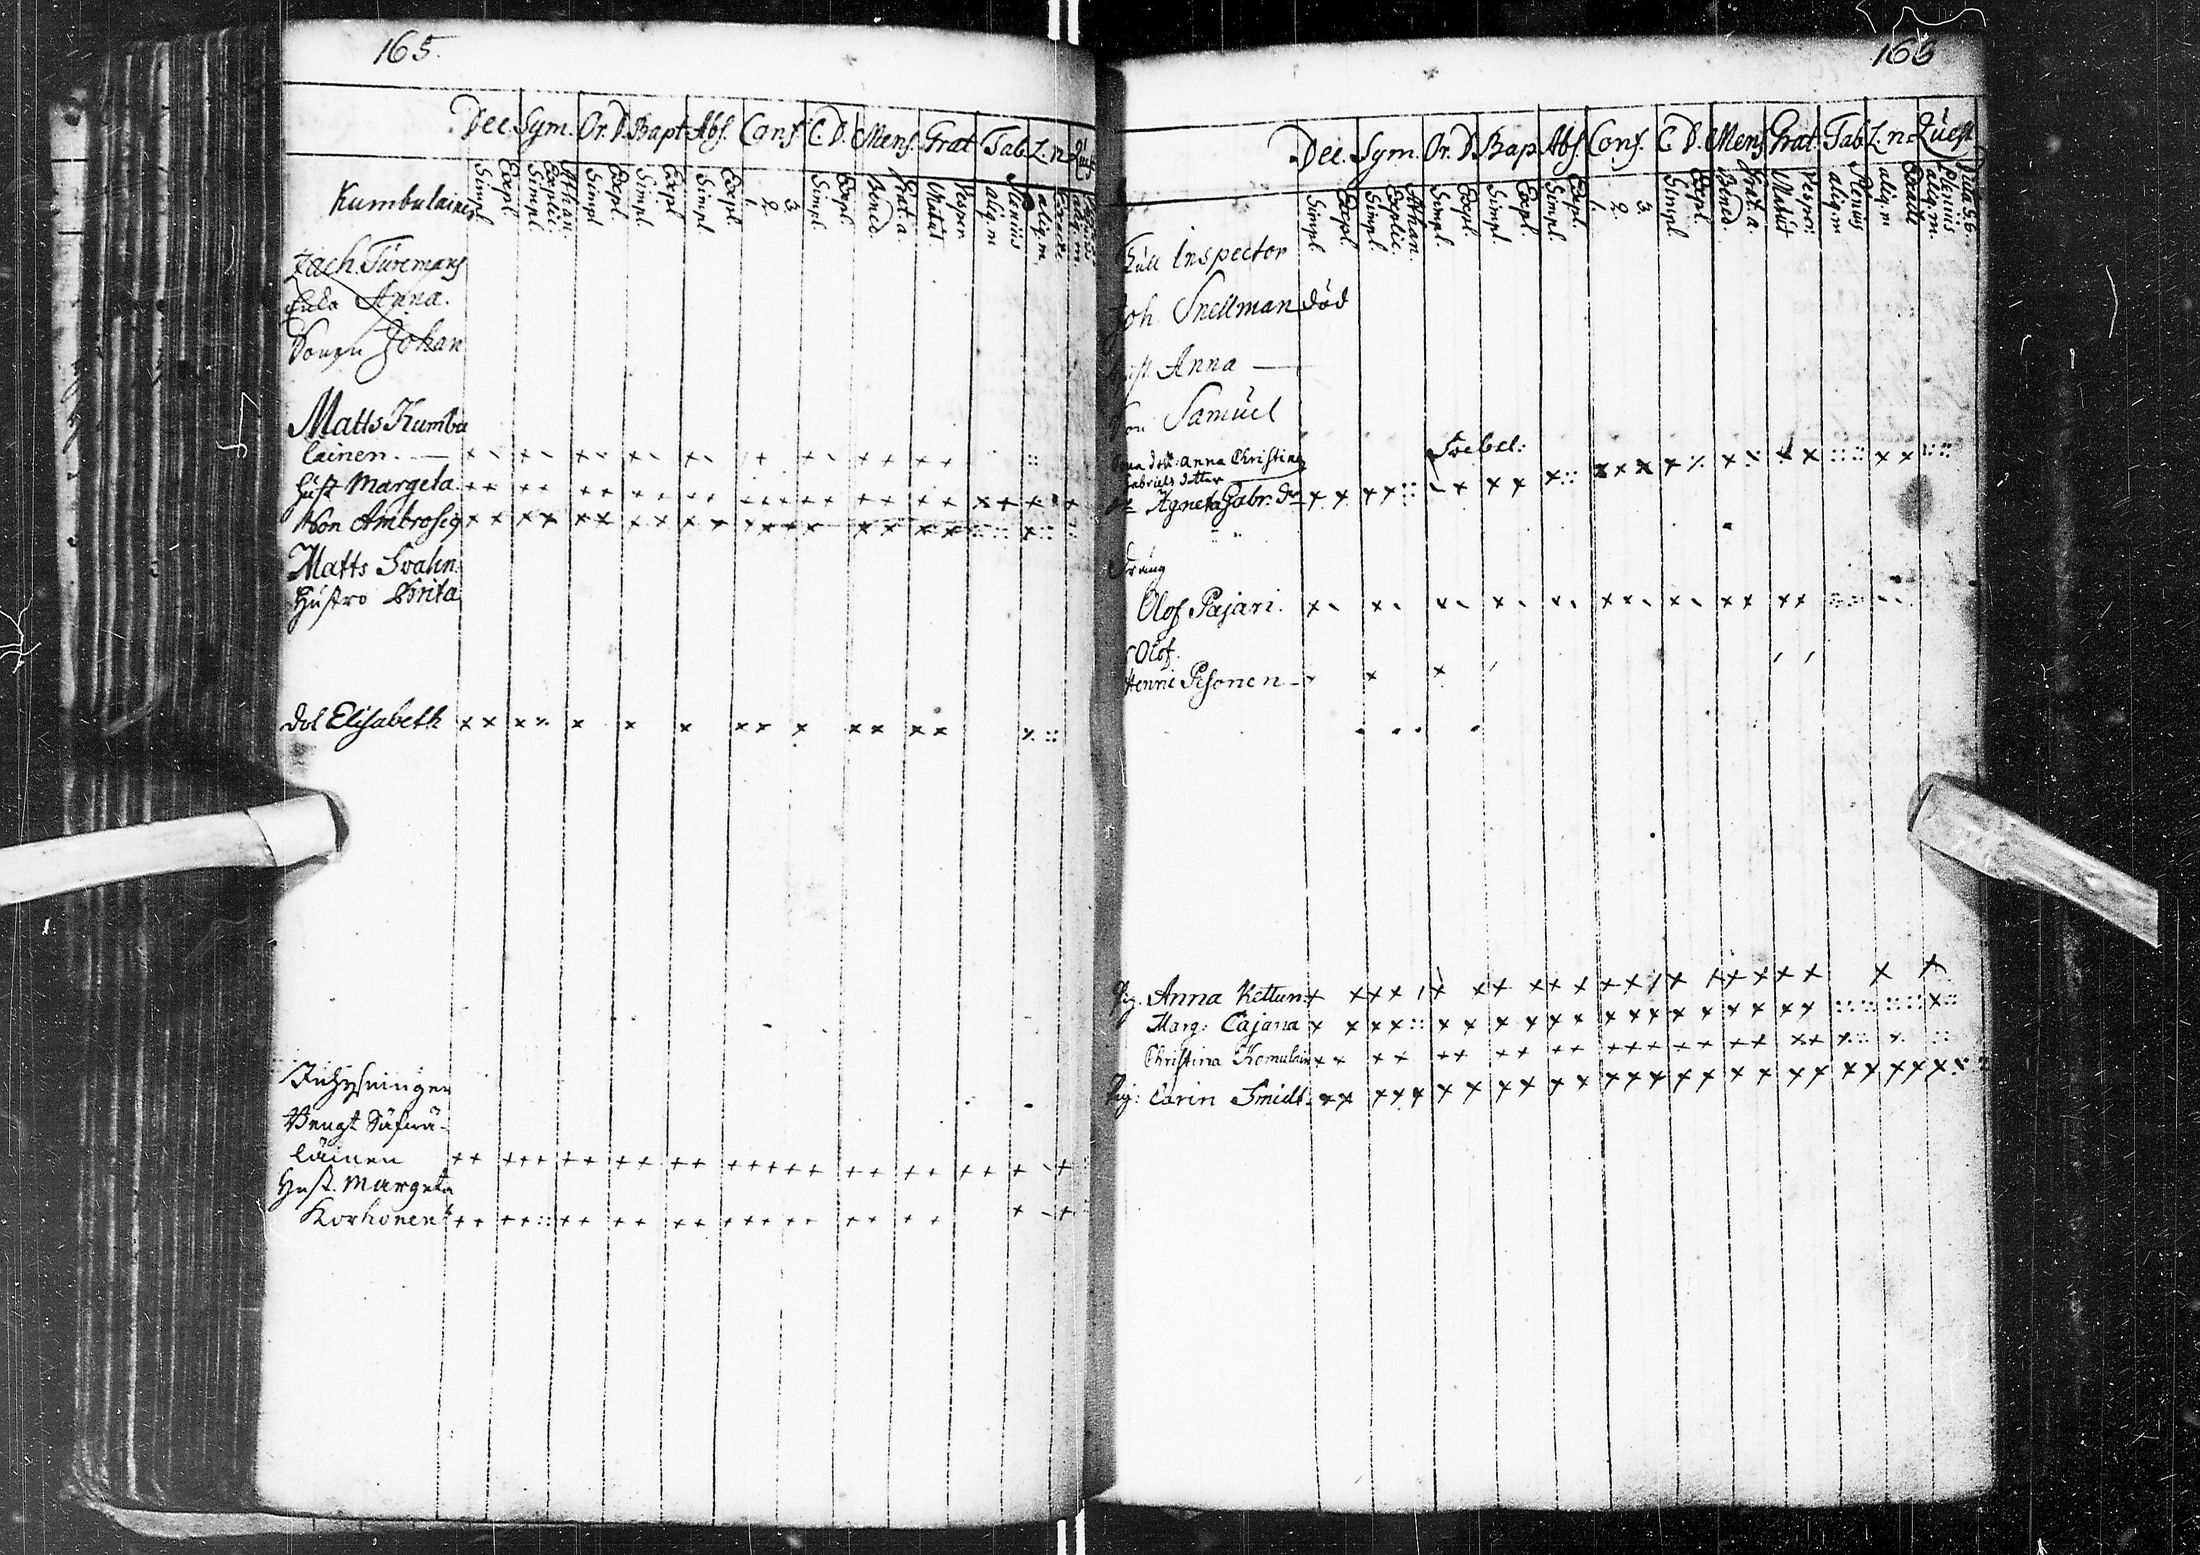 165.
Dec. Sym. Or. D. Bapt. Abs. Conf C. D. Mens. Grat Tab. Z. n
Simpl. Expl. Simpl. Explic. Athan. Simpl Expl. Simpl. Expl Simpl Expl. 1. 2. 3. Simpl. Expl. Bened. Grat. a. Vitatut Vesper aliq. n Plenius aliq. n
Kumbulain
Zach. Türemans
Enka Anna.
Sonen Johan
Matts Kumbu
lainen.
Hust Margeta
Son Ambrosig
Matts Svahn
Hustro Brita
Dot Elisabeth
Inhysningen
Bengt
läinen
Hust. Margeta
Korhonen
163
Dec. Sym. Or. D. Bap Abs. Conf. C. D. Mens Grat. Tab Z. n. Quest
Simpl. Expl. Simpl. Explic. Athan. Simpl. Expl. Simpl. Expl. Simpl. Expl. 1. 2. 3. Simpl Expl. Bened. Grat. a. Vesperi aliq. n Plenius aliq. n Plenius aliq. n.
Tull Inspector
Joh. Snellman död
Hust Anna
Son Samuel
Anna Christina
Gabriels dotter
Agneta Gabr. dr
Dräng
Olof Pajari.
Olof.
Henric Pesonen
Pig. Anna Kettun
Marg: Cajana
Christina Komulain
Pig: Carin Smidt